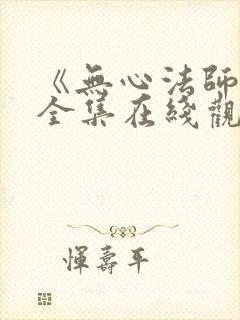 《無心法師
全集在綫觀
惲壽平